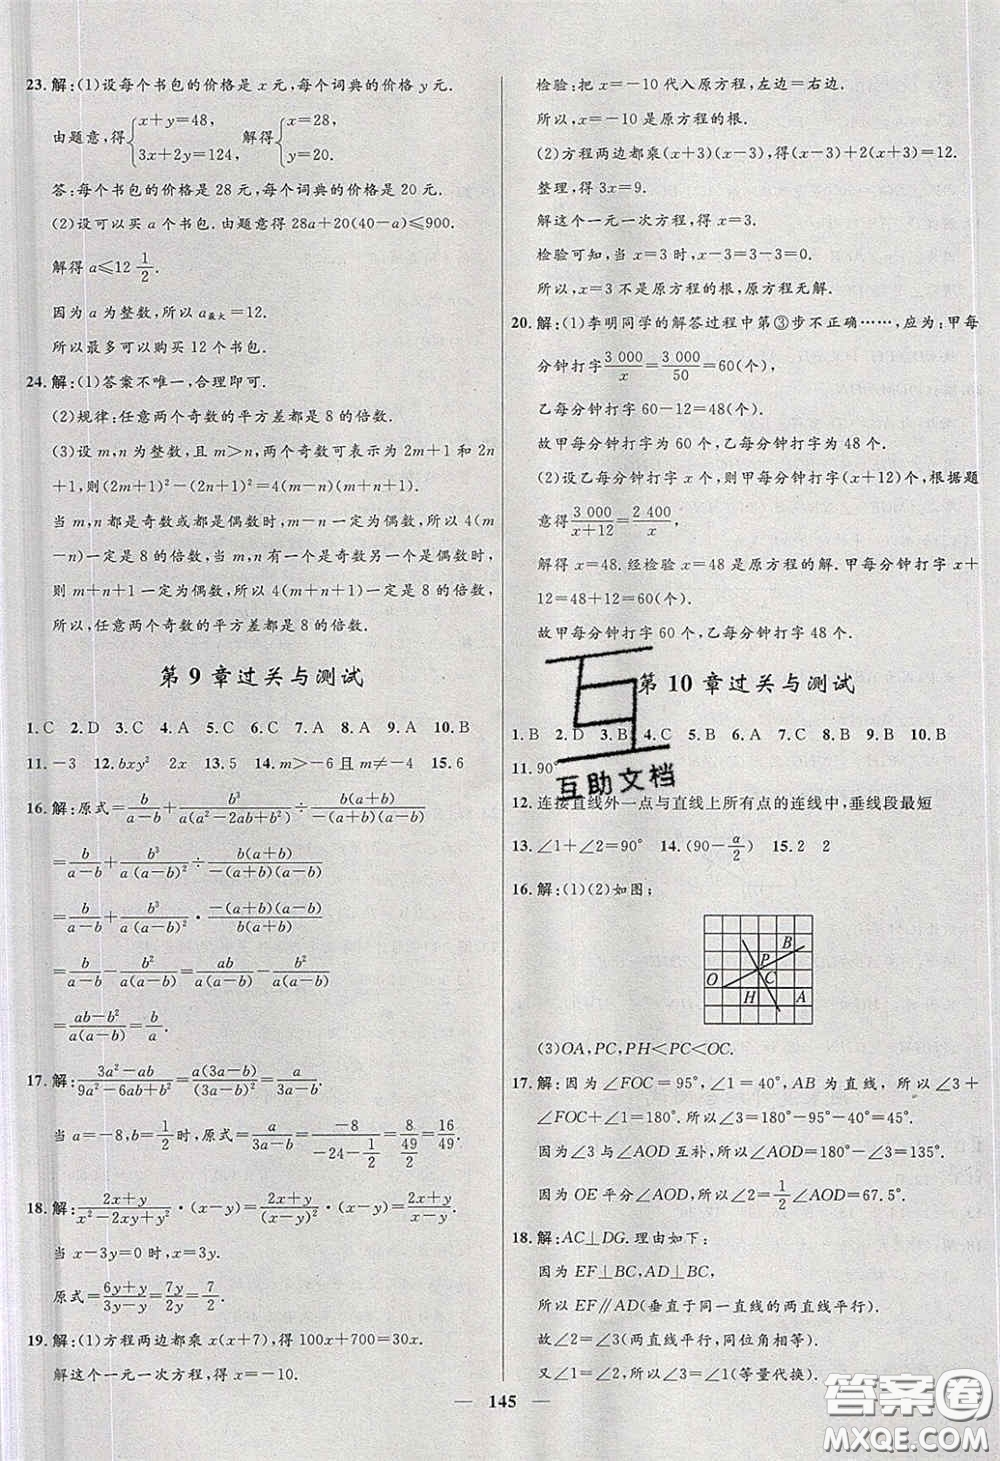 23. 解:(1)设每个书包的价格是 x 元,每个词典的价格 y 元.
由题意,得{x+y=48, 3x+2y=124, 解得{x=28, y=20.
答:每个书包的价格是 28 元,每个词典的价格是 20 元.
(2)设可以买 a 个书包. 由题意得 28a+20(40-a)≤900.
解得 a≤12 1/2.
因为 a 为整数,所以 a最大=12.
所以最多可以购买 12 个书包.
24. 解:(1)答案不唯一,合理即可.
(2)规律:任意两个奇数的平方差都是 8 的倍数.
(3)设 m,n 为整数,且 m>n,两个奇数可表示 2m+1 和 2n
+1,则(2m+1)²-(2n+1)²=4(m-n)(m+n+1).
当 m,n 都是奇数或都是偶数时,m-n 一定为偶数,所以 4(m
-n)一定是 8 的倍数;当 m,n 一个是奇数另一个是偶数时,
则 m+n+1 一定为偶数,所以 4(m+n+1)一定是 8 的倍数,
所以,任意两个奇数的平方差都是 8 的倍数.
第 9 章过关与测试
1. C 2. D 3. C 4. A 5. C 6. C 7. A 8. A 9. A 10. B
11. -3 12. bxy² 2x 13. 5 14. m>-6 且 m≠-4 15. 6
16. 解:原式=b/(a-b)+b³/(a(a²-2ab+b²))÷(b(a+b))/(-(a+b)(a-b))
=b/(a-b)+b³/(a(a-b)²)÷(b(a+b))/(-(a+b)(a-b))
=b/(a-b)+b³/(a(a-b)²)·(-(a+b)(a-b))/(b(a+b))
=b/(a-b)-b²/(a(a-b))=ab/(a(a-b))-b²/(a(a-b))
=(ab-b²)/(a(a-b))=b/a.
17. 解:(3a²-ab)/(9a²-6ab+b²)=a(3a-b)/(3a-b)²=a/(3a-b).
当 a=-8,b=1/2时,原式=a/(3a-b)=-8/(-24-1/2)=8/(49/2)=16/49.
18. 解:(2x+y)/(x²-2xy+y²)·(x-y)=(2x+y)/(x-y)²·(x-y)=(2x+y)/(x-y).
当 x-3y=0 时,x=3y.
原式=(6y+y)/(3y-y)=7y/2y=7/2.
19. 解:(1)方程两边都乘 x(x+7),得 100x+700=30x.
解这个一元一次方程,得 x=-10.
检验:把 x=-10 代入原方程,左边=右边.
所以,x=-10 是原方程的根.
(2)方程两边都乘(x+3)(x-3),得(x-3)+2(x+3)=12.
整理,得 3x=9.
解这个一元一次方程,得 x=3.
检验可知,当 x=3 时,x-3=3-3=0.
所以,x=3 不是原方程的根,原方程无解.
20. 解:(1)李明同学的解答过程中第③步不正确……,应为:甲每
分钟打字3 000/x=3 000/50=60(个),
乙每分钟打字 60-12=48(个).
故甲每分钟打字为 60 个,乙每分钟打字为 48 个.
(2)设乙每分钟打字 x 个,则甲每分钟打字(x+12)个,根据题
意得3 000/(x+12)=2 400/x,
解得 x=48. 经检验 x=48 是原方程的解. 甲每分钟打字 x+
12=48+12=60(个).
故甲每分钟打字 60 个,乙每分钟打字 48 个.
第 10 章过关与测试
1. B 2. D 3. B 4. C 5. B 6. A 7. B 8. A 9. D 10. B
11. 90°
12. 连接直线外一点与直线上所有点的连线中,垂线段最短
13. ∠1+∠2=90° 14. (90-α/2) 15. 2 2
16. 解:(1)(2)如图;
B
P
O C
H A
(3)OA,PC,PH<PC<OC.
17. 解:因为∠FOC=95°,∠1=40°,AB 为直线,所以∠3+
∠FOC+∠1=180°. 所以∠3=180°-95°-40°=45°.
因为∠3 与∠AOD 互补,所以∠AOD=180°-∠3=135°.
因为 OE 平分∠AOD,所以∠2=1/2∠AOD=67.5°.
18. 解:AC⊥DG. 理由如下:
因为 EF⊥BC,AD⊥BC,
所以 EF∥AD(垂直于同一直线的两直线平行).
故∠2=∠3(两直线平行,同位角相等).
又∠1=∠2,所以∠1=∠3(等量代换).
145
互助文档
答案圈
MXQE.COM